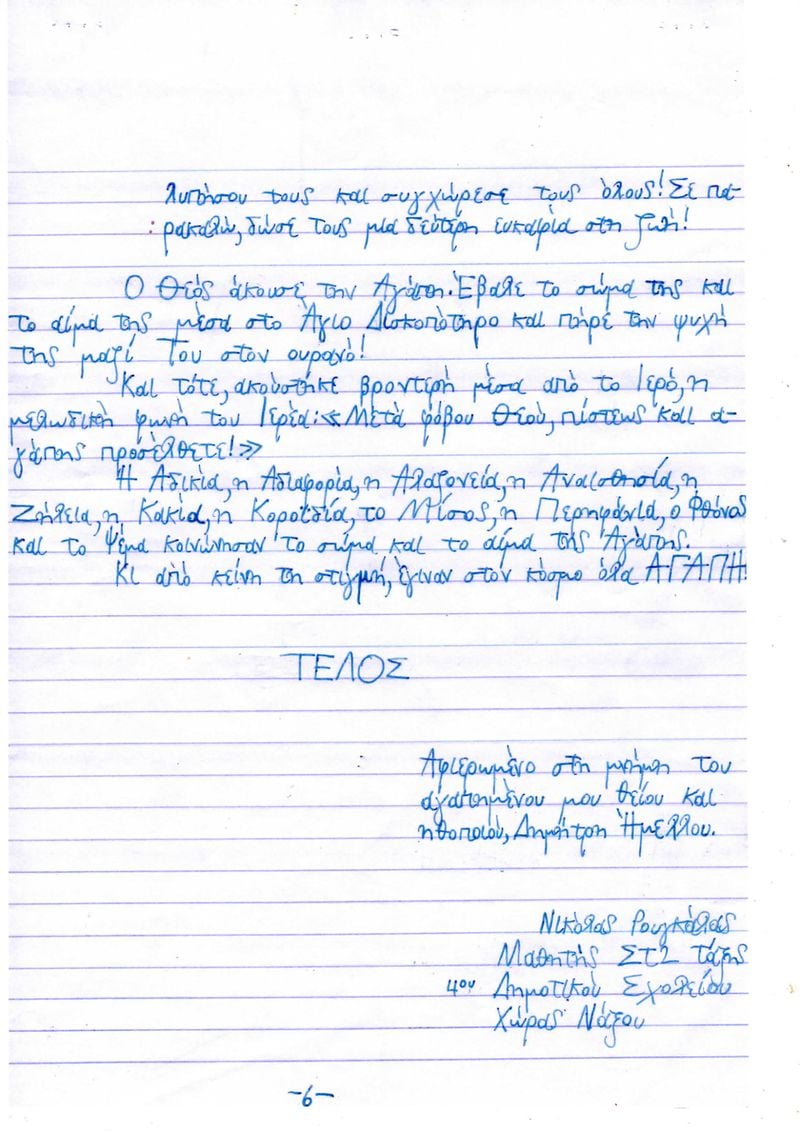 λυπήσου τους και συγχώρεσε τους όλους! Σε πα-
ρακαλώ, δώσε τους μία δεύτερη ευκαιρία στη ζωή!
Ο Θεός άκουσε την Αγάπη. Έβαλε το σώμα της και
το αίμα της μέσα στο Άγιο Δισκοπότηρο και πήρε την ψυχή
της μαζί Του στον ουρανό!
Και τότε, ακούστηκε βροντερή μέσα από το Ιερό, η
μελωδική φωνή του Ιερέα: «Μετά φόβου Θεού, πίστεως και α-
γάπης προσέλθετε!»
Η Αδικία, η Αδιαφορία, η Αλαζονεία, η Αναισθησία, η
Ζήλεια, η Κακία, η Κοροϊδία, το Μίσος, η Περηφάνια, ο Φθόνος
και το Ψέμα κοινώνησαν το σώμα και το αίμα της Αγάπης.
Κι από κείνη τη στιγμή, έγιναν στον κόσμο όλα ΑΓΑΠΗ!
ΤΕΛΟΣ
Αφιερωμένο στη μνήμη του
αγαπημένου μου θείου και
ηθοποιού, Δημήτρη Ήμελλου.
Νικόλας Ρουγκάλας
Μαθητής ΣΤ2 Τάξης
4ου Δημοτικού Σχολείου
Χώρας Νάξου
-6-